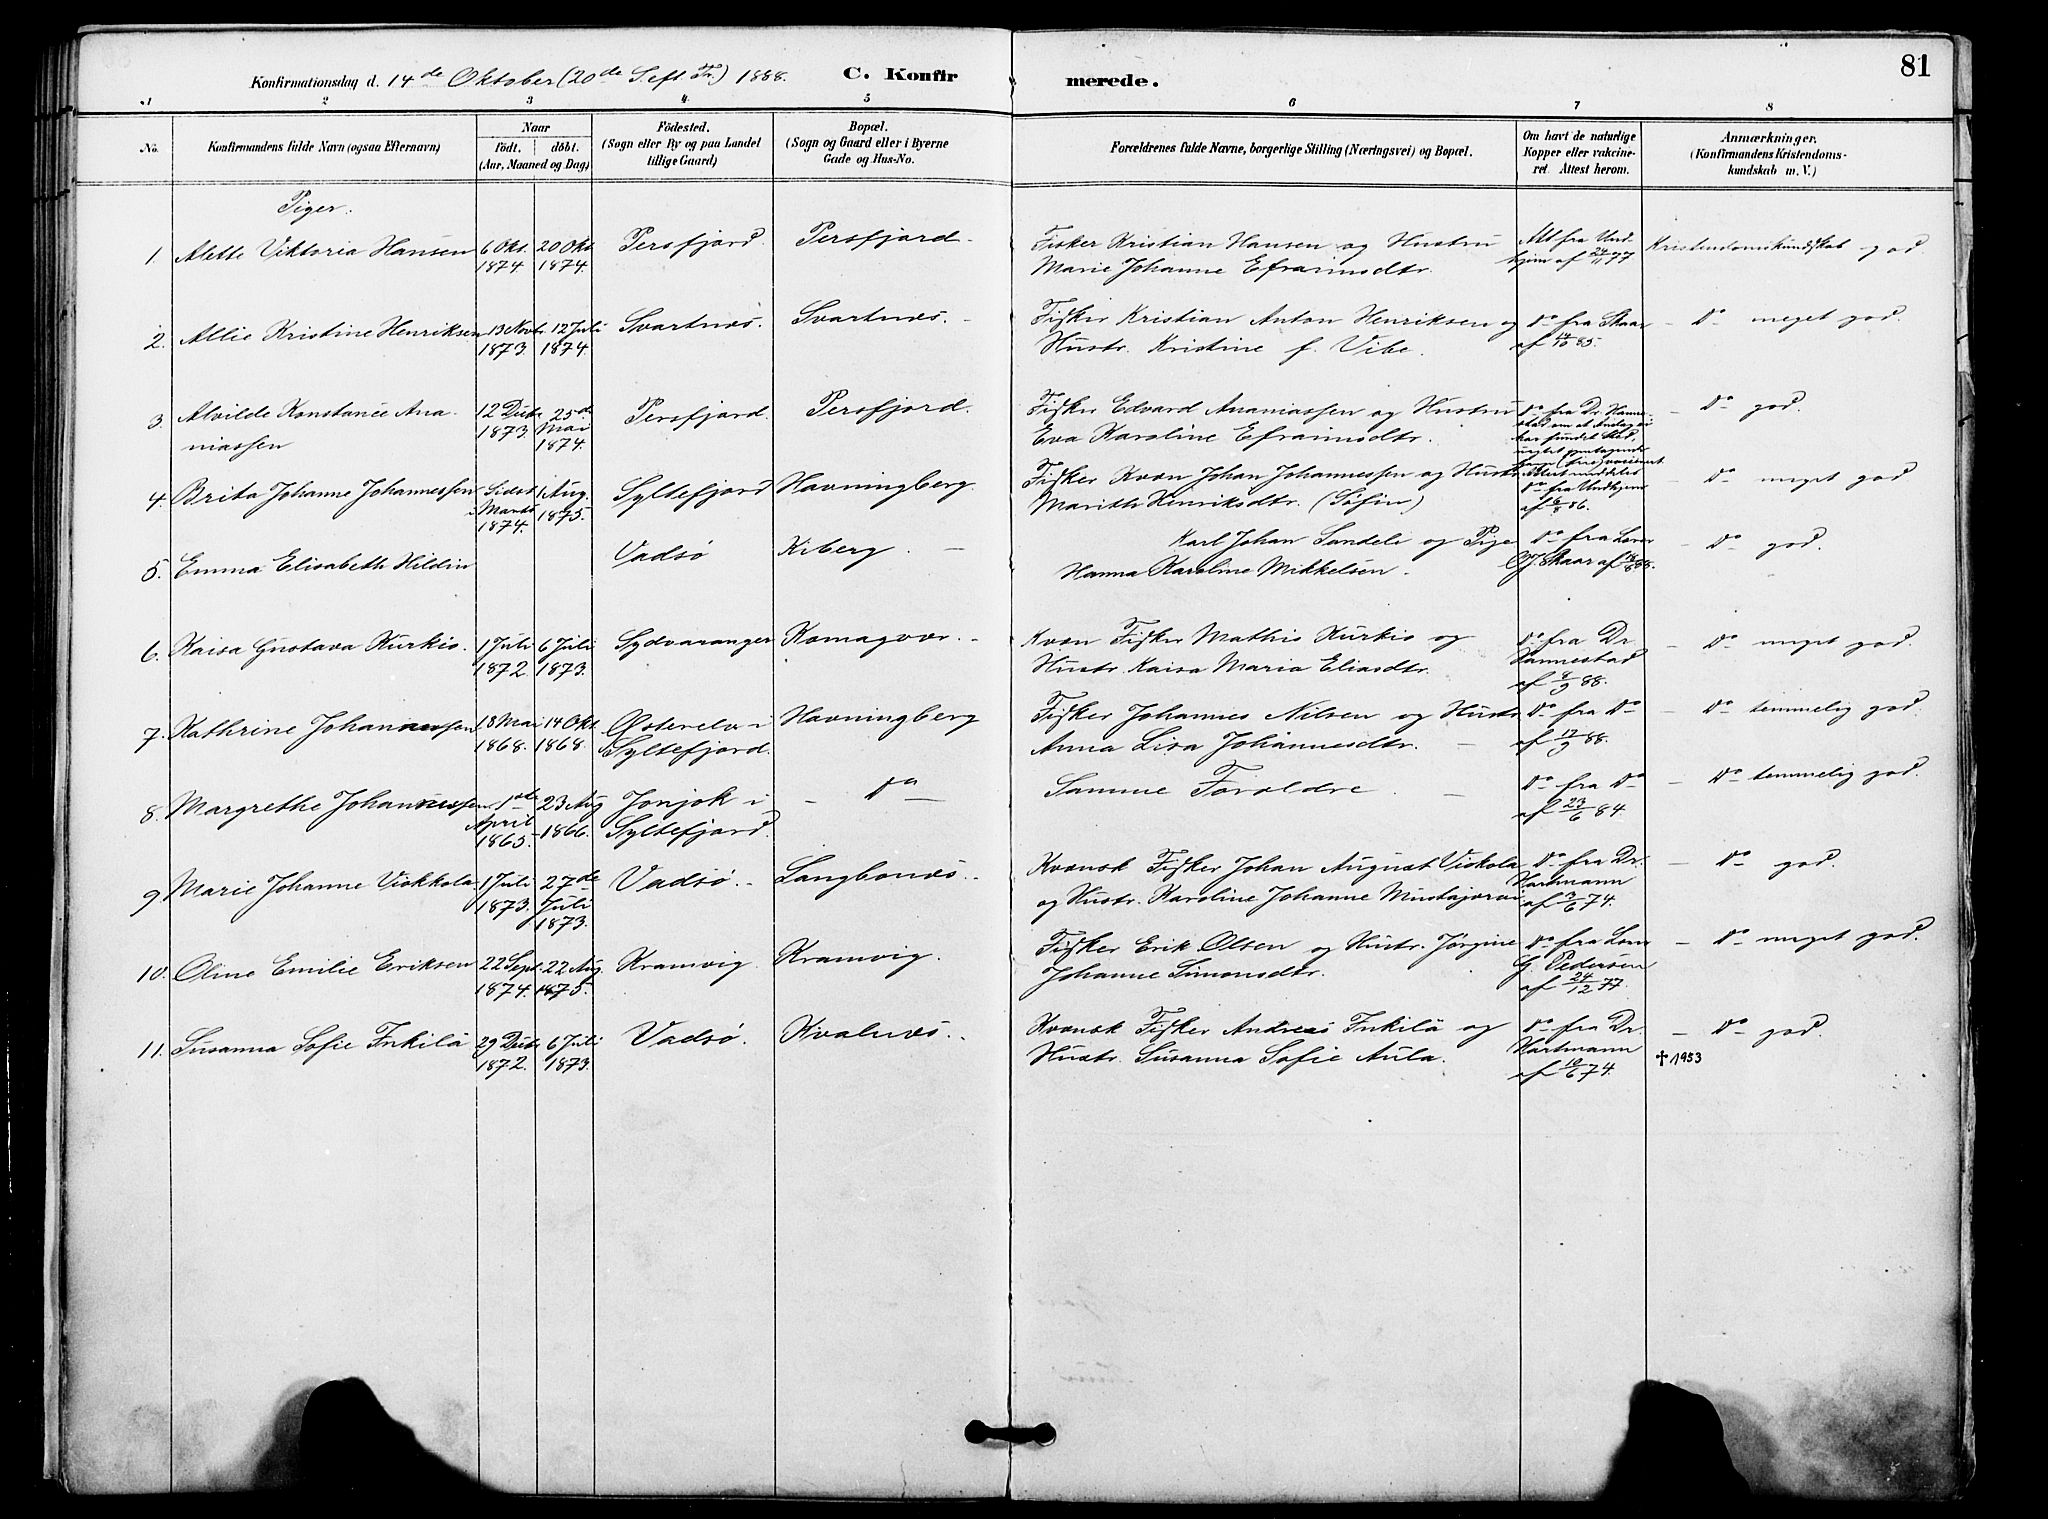 Konfirmationsdag d. 14de Oktober (20de S. eft. Tr.) 1888. C. Konfirmerede. 81
1 2 3 4 5 6 7 8
No. Konfirmandens fulde Navn (ogsaa Efternavn) Naar födt. döbt. (Aar, Maaned og Dag) Födested. (Sogn eller By og paa Landet tillige Gaard) Bopæl. (Sogn og Gaard eller i Byerne Gade og Hus-No. Forældrenes fulde Navne, borgerlige Stilling (Næringsvei) og Bopæl. Om havt de naturlige Kopper eller vakcineret. Attest herom. Anmærkninger. (Konfirmandens Kristendomskundskab m. V.)
Piger.
1. Alette Viktoria Hansen 6 Okt. 1874 20 Okt. 1874. Persfjord. Persfjord. Fisker Kristian Hansen og Hustru
Marie Johanne Efraimsdtr. Att fra Undhjem af 24/11 77 Kristendomskundskab god.
2. Allie Kristine Henriksen 13 Novbr 1873. 12 Juli 1874. Svartnæs. Svartnæs. Fisker Kristian Anton Henriksen og
Hustr. Kristine f. Vibe. Do fra Skaar af 14/10 85. Do meget god.
3. Alvilde Konstance Ananiassen 12 Decbr 1873 25de Mai 1874. Persfjord. Persfjord. Fisker Edvard Ananiassen og Hustru
Eva Karoline Efraimsdtr. Do fra Dr. Do god.
4. Brita Johanne Johannessen Sidst i Marts 1874. 1 Aug. 1875. Syltefjord Havningberg. Fisker Kvæn Johan Johannessen og Hustr.
Marith Henriksdtr. (Søfin) Do fra Undhjem af 16/8 86. Do meget god
5. Emma Elisabeth Hildin Vadsø Kiberg. Karl Johan Sandeli og Pige
Hanna Karoline Mikkelsen. Do fra Lærer O. J. Skaar af Do god.
6. Kaisa Gustava Kurkio. 1 Juli 1872. 6 Juli 1873. Sydvaranger Komagvær. Kvæn Fisker Mathis Kurkio og
Hustr. Kaisa Maria Eliasdtr. Do fra Dr. Hannestad af 8/9 88. Do meget god.
7. Kathrine Johannessen 18 Mai 1868. 14 Okt. 1868. Østerelv i Syltefjord. Havningberg Fisker Johannes Nilsen og Hustr.
Anna Lisa Johannesdtr. Do fra Do af 17/9 88. Do temmelig god.
8. Margrethe Johannessen 1ste April 1865. 23 Aug 1866. Jonjok i Syltefjord. Do Samme Forældre. Do fra Do af 23/6 84. Do temmelig god.
9 Marie Johanne Viokkola 1 Juli 1873. 27de Juli 1873. Vadsø. Langbunæs. Kvænsk Fisker Johan August Viokola
og Hustr. Karoline Johanne Mustajærvi Do fra Dr. Hartmann af 3/6 74. Do god.
10. Oline Emilie Eriksen 22 Sept. 1874. 22 Aug. 1875. Kramvig. Kramvig. Fisker Erik Olsen og Hustr. Jørgine
Johanne Simonsdtr. Do fra Lærer G. Pedersen af 24/12 77. Do meget god.
11. Susanna Sofie Inkilä 29 Decbr 1872. 6 Juli 1873. Vadsø. Kvalnæs. Kvænsk Fisker Andreas Inkilä og
Hustr. Susanna Sofie Aula. Do fra Dr. Hartmann af 10/6 74. Do god.
✝ 1953